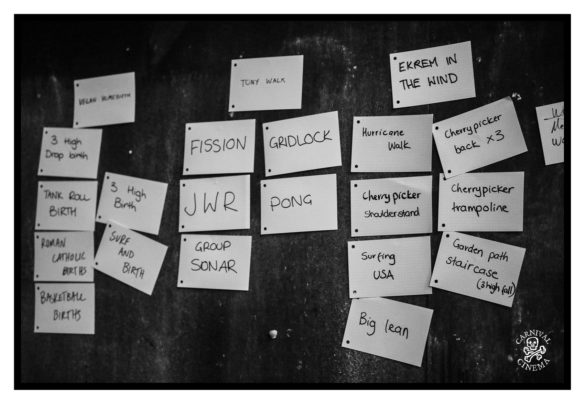 VEGAN HOMEBIRTH
3 High
Drop birth
TANK ROLL
BIRTH
3 High
Birth
ROMAN
CATHOLIC
BIRTHS
SURF
AND
BIRTH
BASKETBALL
BIRTHS
TONY WALK
FISSION
GRIDLOCK
JWR
PONG
GROUP
SONAR
EKREM IN
THE WIND
Hurricane
Walk
Cherrypicker
back x3
Cherrypicker
shoulderstand
Cherrypicker
trampoline
Surfing
USA
Garden path
staircase
(3 high fall)
Big lean
CARNIVAL
CINEMA